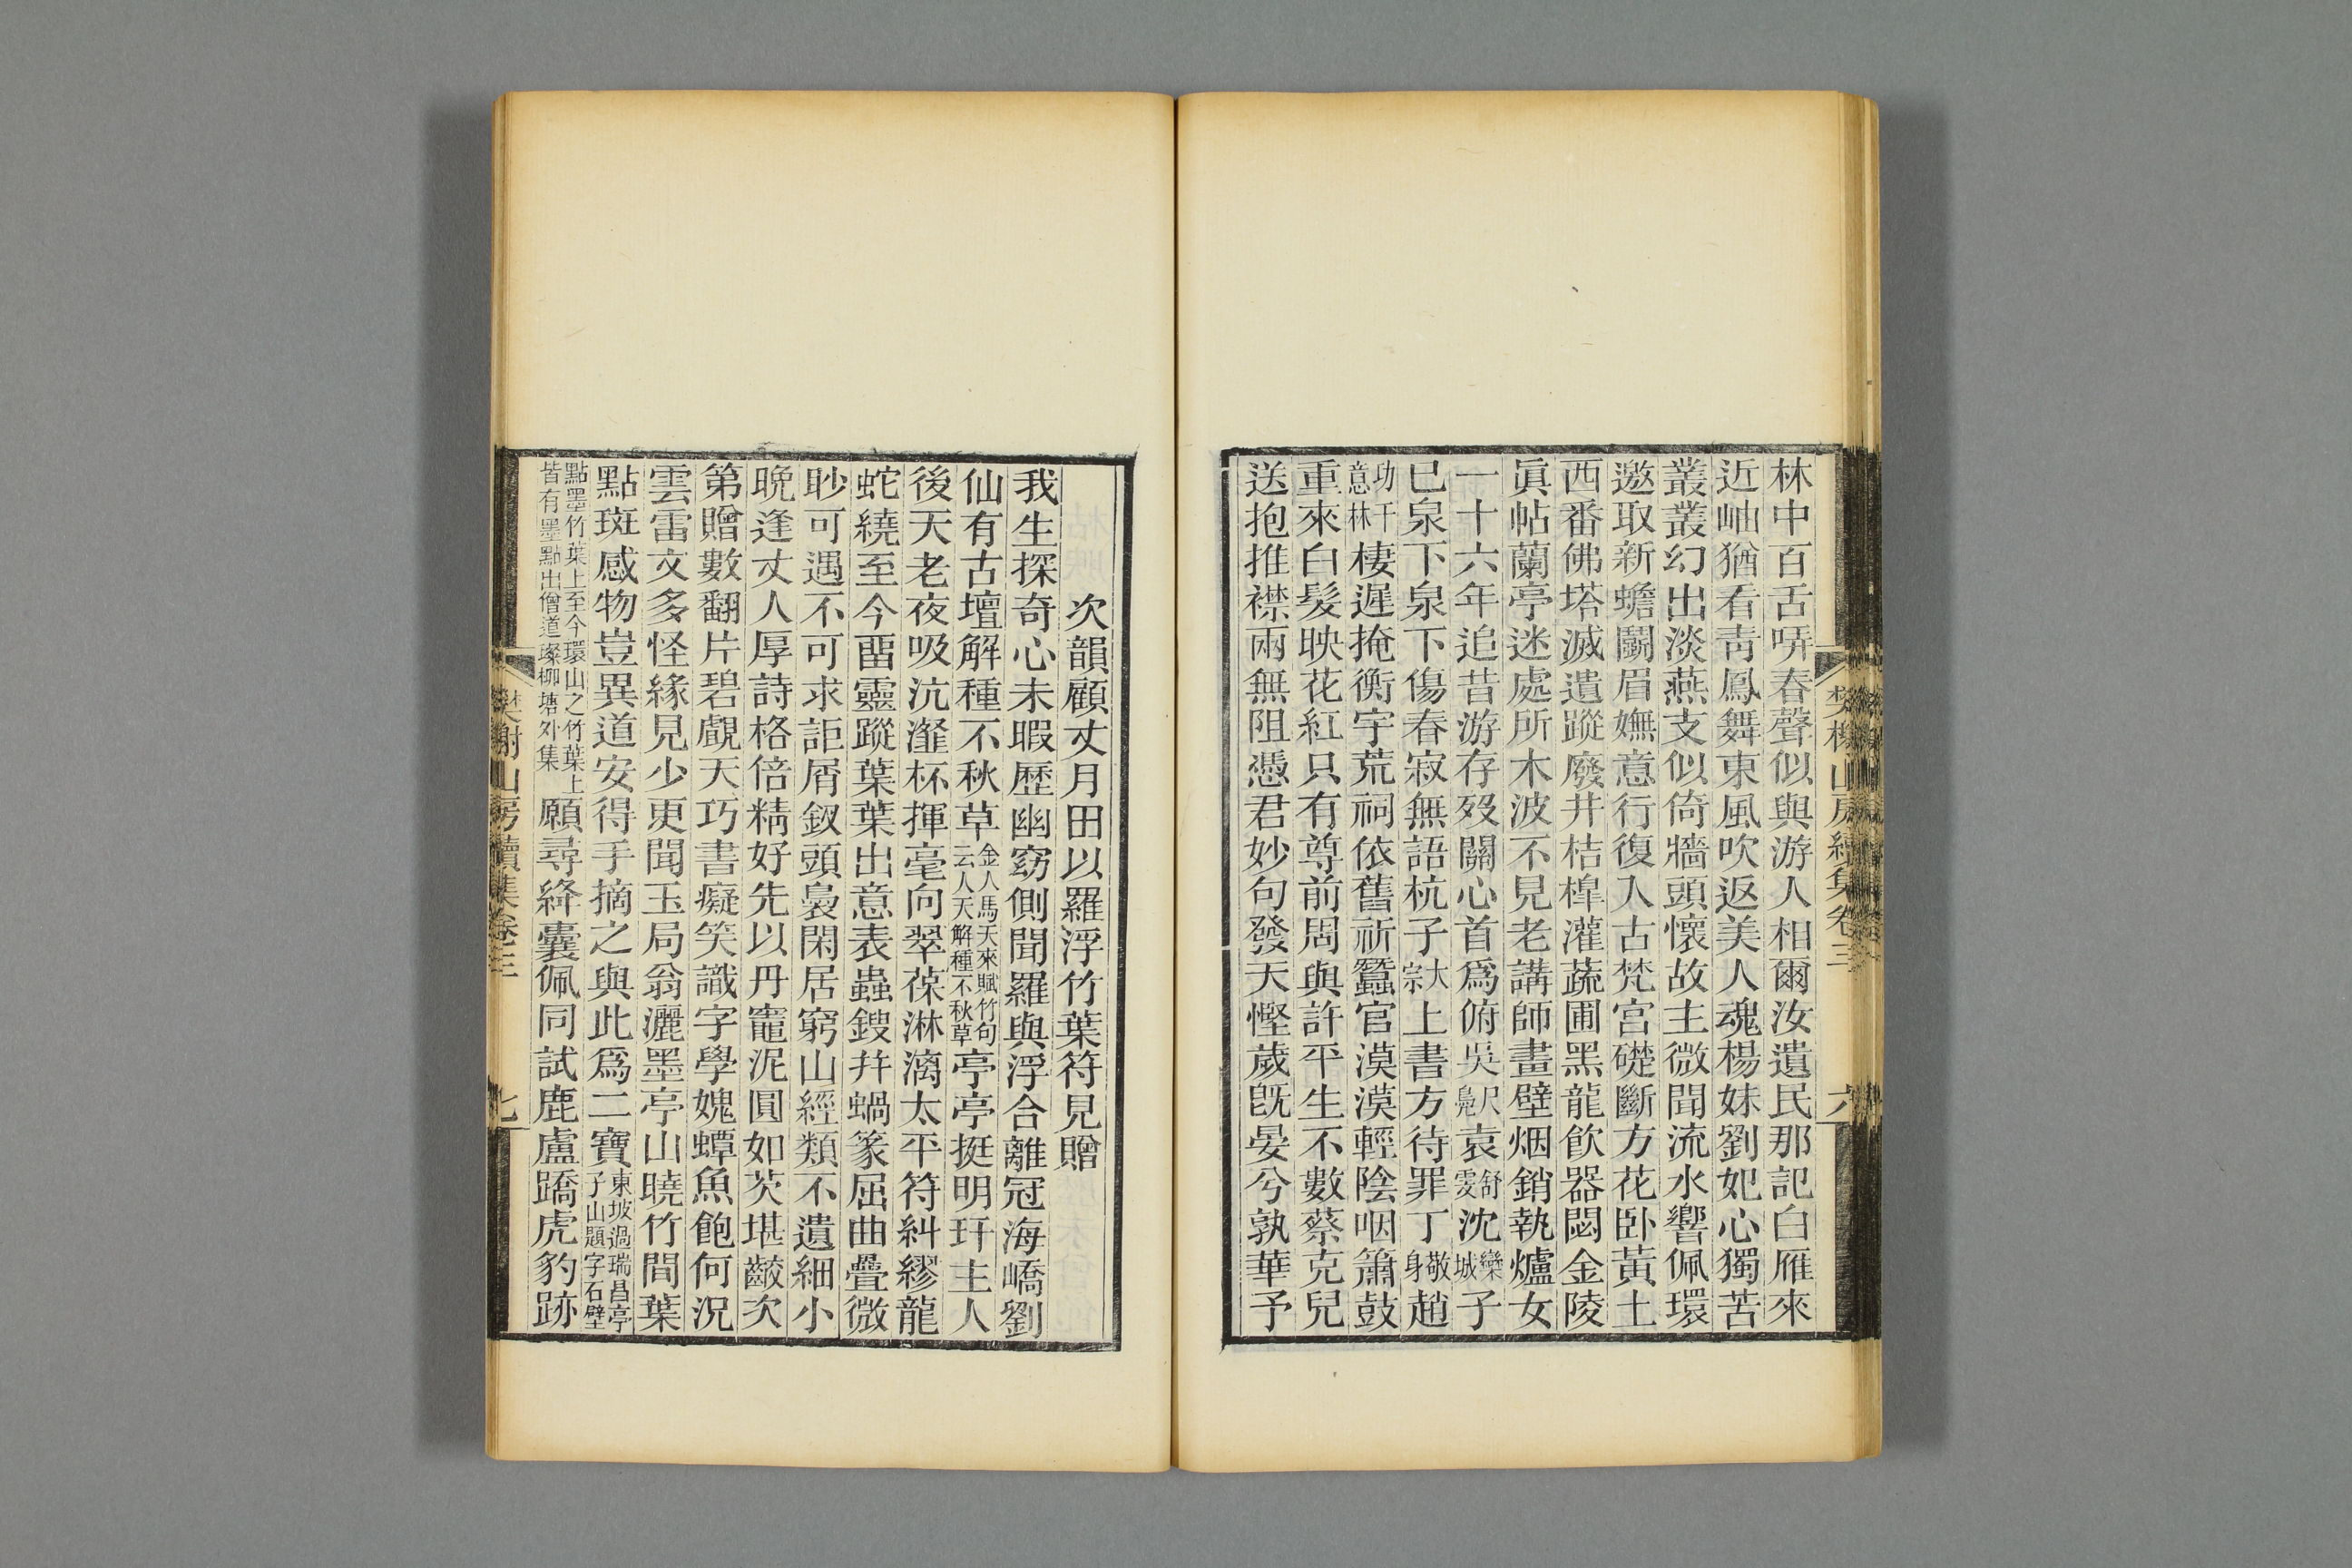 林中百舌哢春聲似與游人相爾汝遺民那記白雁來
近岫猶看靑鳳舞東風吹返美人魂楊妹劉妃心獨苦
叢叢幻出淡燕支似倚牆頭懷故主微聞流水響佩環
邀取新蟾鬭眉嫵意行復入古梵宮礎斷方花卧黃土
西番佛塔滅遺蹤廢井桔槔灌蔬圃黑龍飮器閟金陵
眞帖蘭亭迷處所木波不見老講師畫壁烟銷執爐女
一十六年追昔游存歿關心首爲俯吳尺鳧袁舒雯沈欒城子
已泉下泉下傷春寂無語杭子大宗上書方待罪丁敬身趙
功千意林棲遲掩衡宇荒祠依舊祈蠶官漠漠輕陰咽簫鼓
重來白髮映花紅只有尊前周與許平生不數蔡克兒
送抱推襟兩無阻憑君妙句發天慳歲旣晏兮孰華予
樊榭山房續集卷三
六
次韻顧丈月田以羅浮竹葉符見贈
我生探奇心未暇歷幽窈側聞羅與浮合離冠海嶠劉
仙有古壇解種不秋草金人馬天來賦竹句云人天解種不秋草亭亭挺明玕主人
後天老夜吸沆瀣杯揮毫向翠葆淋漓太平符糾繆龍
蛇繞至今畱靈蹤葉葉出意表蟲鎪幷蝸篆屈曲疊微
眇可遇不可求詎屑釵頭裊閑居窮山經類不遺細小
晚逢丈人厚詩格倍精好先以丹竈泥圓如芡堪齩次
第贈數翻片碧覷天巧書癡笑識字學媿蟫魚飽何況
雲雷文多怪緣見少更聞玉局翁灑墨亭山曉竹間葉
點斑感物豈異道安得手摘之與此爲二寶東坡過瑞昌亭子山題字石壁
點墨竹葉上至今環山之竹葉上皆有墨點出僧道璨柳塘外集願尋絳囊佩同試鹿盧蹻虎豹跡
樊榭山房續集卷三
七